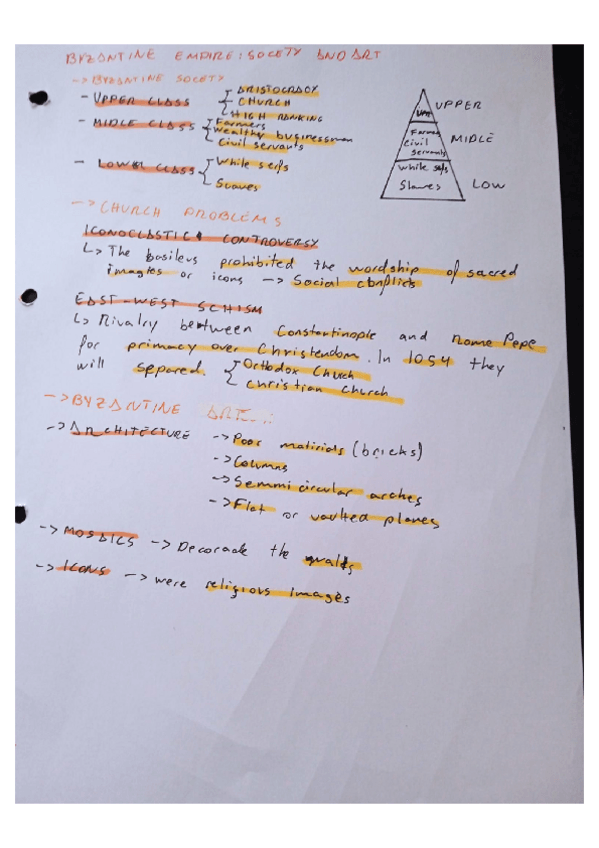 BYZANTINE EMPIRE: SOCETY AND ART
-> BYZANTINE SOCETY
- UPPER CLASS
ARISTOCRACY
CHURCH
HIGH RANKING
- MIDLE CLASS
Farmers
wealthy businessman
Civil servants
- LOWER CLASS
White serfs
Slaves
UPPER
Farmer
Civil
servants
MIDLE
White serfs
Slaves
LOW
-> CHURCH PROBLEMS
ICONOCLASTIC CONTROVERSY
L> The basileus prohibited the wordship of sacred
images or icons -> Social conflicts
EAST-WEST SCHISM
L> Rivalry bertween Constantinople and Rome Pepe
for primacy over Christendom. In 1054 they
will seppared.
Orthodox Church
Christian church
-> BYZANTINE ART:
-> ARCHITECTURE
-> Poor matirials (bricks)
-> Columns
-> Semmicircular arches
-> Flat or vaulted planes
-> MOSAICS -> Decorade the walls
-> ICONS -> were religious images